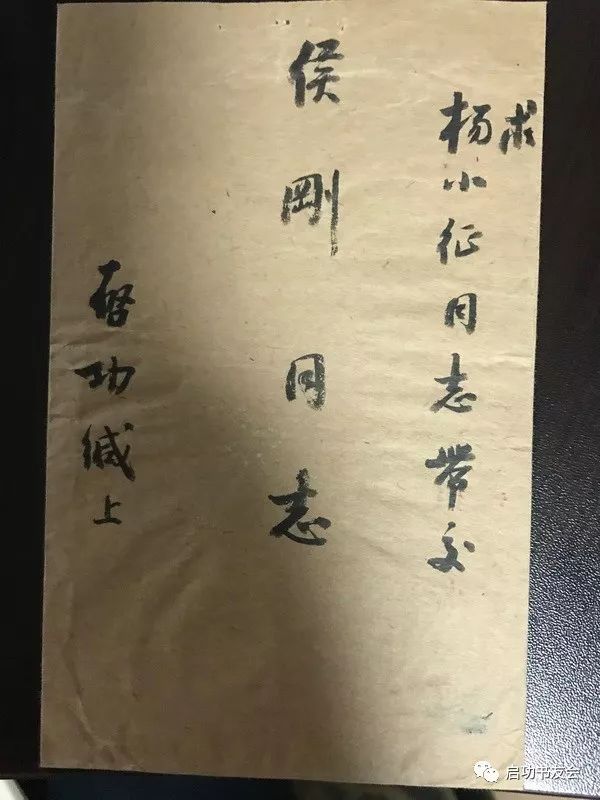 求
杨小征同志带交
侯刚同志
启功缄上
启功书友会